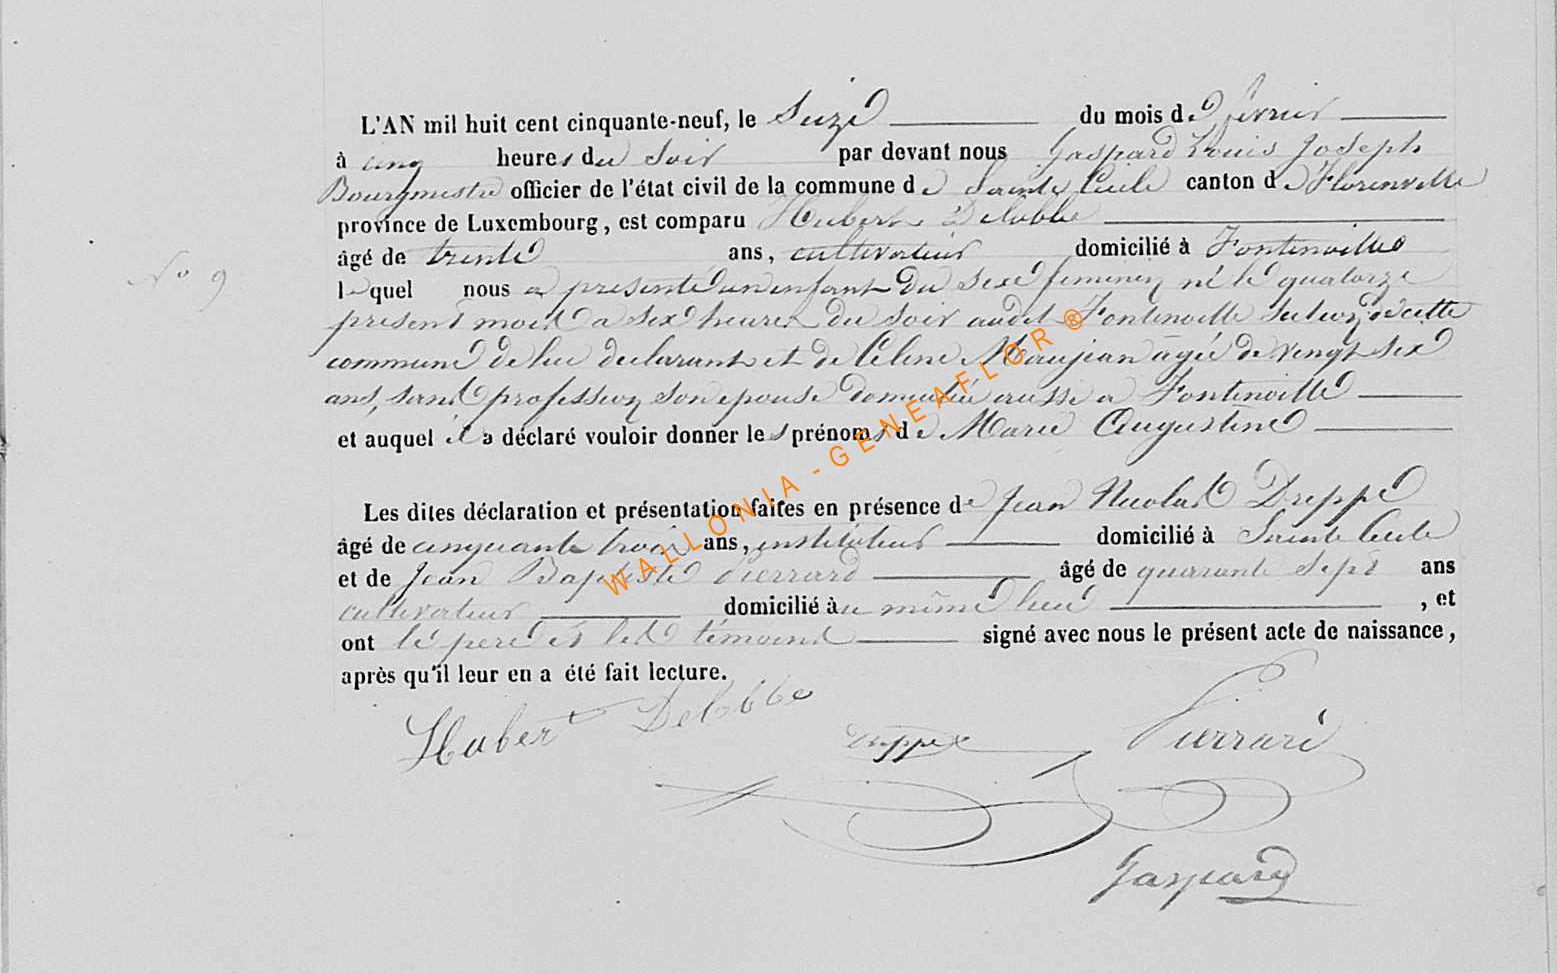 L'AN mil huit cent cinquante-neuf, le Seize du mois de fevrier
à cinq heures du Soir par devant nous Gaspard Louis Joseph
Bourgmestre officier de l'état civil de la commune de Sainte Cecile canton de Florenville
province de Luxembourg, est comparu Hubert Delobbe
âgé de trente ans, cultivateur domicilié à Fontenoille
N° 9
lequel nous a presenté un enfant du sexe feminin né le quatorze
present mois a six heures du soir audit Fontenoille section de cette
commune de lui declarant et de Celine Maujean âgée de vingt six
ans, sans profession son epouse domiciliée aussi a Fontenoille
et auquel il a déclaré vouloir donner les prénoms de Marie Augustine
Les dites déclaration et présentation faites en présence de Jean Nicolas Dreppe
âgé de cinquante trois ans, instituteur domicilié à Sainte Cecile
et de Jean Baptiste Pierrard âgé de quarante sept ans
cultivateur domicilié au même lieu , et
ont le pere et les témoins signé avec nous le présent acte de naissance,
après qu'il leur en a été fait lecture.
Hubert Delobbe
Dreppe Pierrard
Gaspard
WALLONIA - GENEAFLOR ®